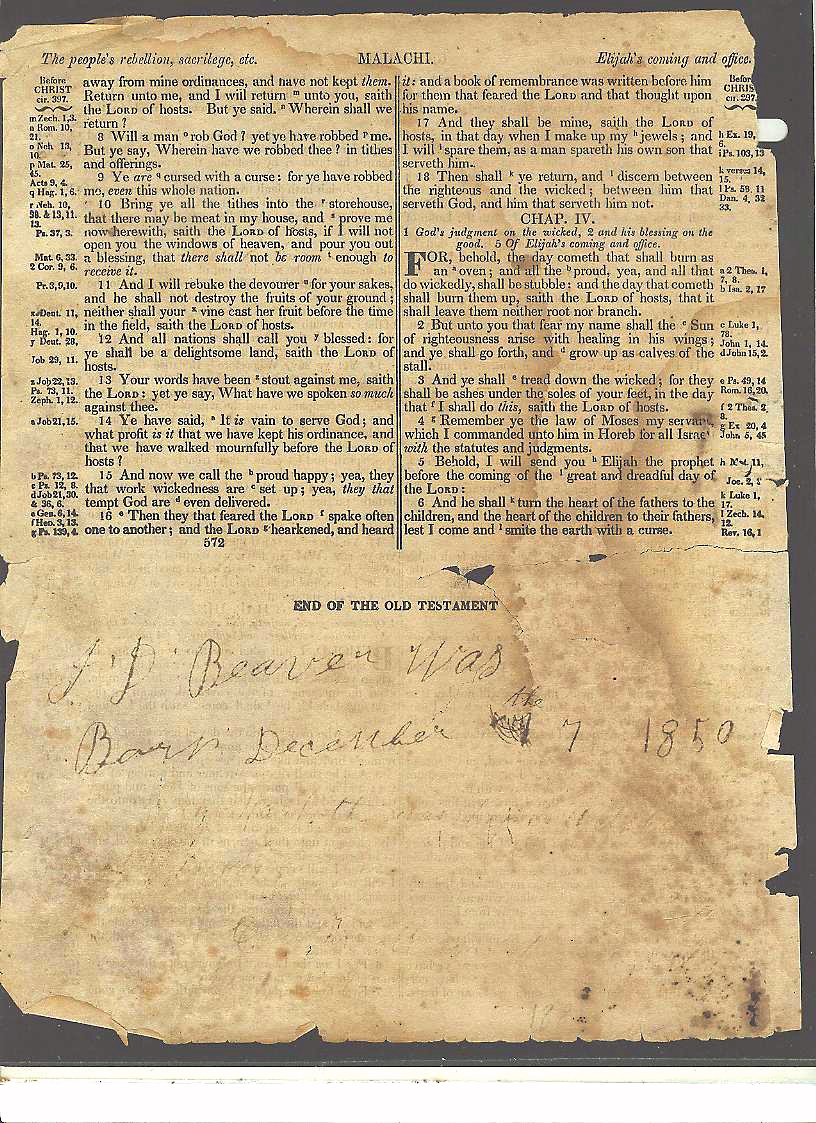 The people's rebellion, sacrilege, etc. MALACHI. Elijah's coming and office.
Before
CHRIST
cir. 397.
m Zech. 1,3.
n Rom. 10,
21.
o Neh. 13,
10.
p Mat. 25,
45.
Acts 9, 4.
q Hag. 1, 6.
r Neh. 10,
38. & 13,11.
13.
Ps. 37, 3.
Mat. 6, 33.
2 Cor. 9, 6.
Pr. 3,9,10.
x Deut. 11,
14.
Hag. 1, 10.
y Deut. 28,
Job 29, 11.
z Job 22,13.
Ps. 73, 11.
Zeph. 1, 12.
a Job 21,15.
b Ps. 73, 12.
c Ps. 12, 8.
d Job 21,30.
& 36, 6.
e Gen. 6,14.
f Heb. 3, 13.
g Ps. 139, 4.
away from mine ordinances, and have not kept them.
Return unto me, and I will return m unto you, saith
the LORD of hosts. But ye said. n Wherein shall we
return ?
8 Will a man o rob God ? yet ye have robbed p me.
But ye say, Wherein have we robbed thee ? in tithes
and offerings.
9 Ye are q cursed with a curse: for ye have robbed
me, even this whole nation.
10 Bring ye all the tithes into the r storehouse,
that there may be meat in my house, and s prove me
now herewith, saith the LORD of hosts, if I will not
open you the windows of heaven, and pour you out
a blessing, that there shall not be room t enough to
receive it.
11 And I will rebuke the devourer u for your sakes,
and he shall not destroy the fruits of your ground ;
neither shall your x vine cast her fruit before the time
in the field, saith the LORD of hosts.
12 And all nations shall call you y blessed: for
ye shall be a delightsome land, saith the LORD of
hosts.
13 Your words have been z stout against me, saith
the LORD: yet ye say, What have we spoken so much
against thee.
14 Ye have said, a It is vain to serve God; and
what profit is it that we have kept his ordinance, and
that we have walked mournfully before the LORD of
hosts ?
15 And now we call the b proud happy; yea, they
that work wickedness are c set up; yea, they that
tempt God are d even delivered.
16 e Then they that feared the LORD f spake often
one to another; and the LORD g hearkened, and heard
572
it: and a book of remembrance was written before him
for them that feared the LORD and that thought upon
his name.
17 And they shall be mine, saith the LORD of
hosts, in that day when I make up my h jewels; and
I will i spare them, as a man spareth his own son that
serveth him.
18 Then shall k ye return, and l discern between
the righteous and the wicked; between him that
serveth God, and him that serveth him not.
CHAP. IV.
1 God's judgment on the wicked, 2 and his blessing on the
good. 5 Of Elijah's coming and office.
FOR, behold, the day cometh that shall burn as
an a oven; and all the b proud, yea, and all that
do wickedly, shall be stubble: and the day that cometh
shall burn them up, saith the LORD of hosts, that it
shall leave them neither root nor branch.
2 But unto you that fear my name shall the c Sun
of righteousness arise with healing in his wings;
and ye shall go forth, and d grow up as calves of the
stall.
3 And ye shall e tread down the wicked; for they
shall be ashes under the soles of your feet, in the day
that f I shall do this, saith the LORD of hosts.
4 g Remember ye the law of Moses my servant,
which I commanded unto him in Horeb for all Israel
with the statutes and judgments.
5 Behold, I will send you h Elijah the prophet
before the coming of the i great and dreadful day of
the LORD:
6 And he shall k turn the heart of the fathers to the
children, and the heart of the children to their fathers,
lest I come and l smite the earth with a curse.
Befor
CHRIS
cir. 297.
h Ex. 19,
6.
i Ps. 103, 13
k verse 14,
15.
l Ps. 58, 11
Dan. 4, 32
33.
a 2 Thes. 1,
7, 8.
b Isa. 2, 17
c Luke 1,
78.
John 1, 14.
d John 15, 2.
e Ps. 49, 14
Rom. 16,20.
f 2 Thes. 2,
8.
g Ex 20, 4
John 5, 45
h Mat. 11,
Joe. 2, 3
k Luke 1,
17.
l Zech. 14,
12.
Rev. 16, 1
END OF THE OLD TESTAMENT
J D Beaver Was
the
Born December 7 1850